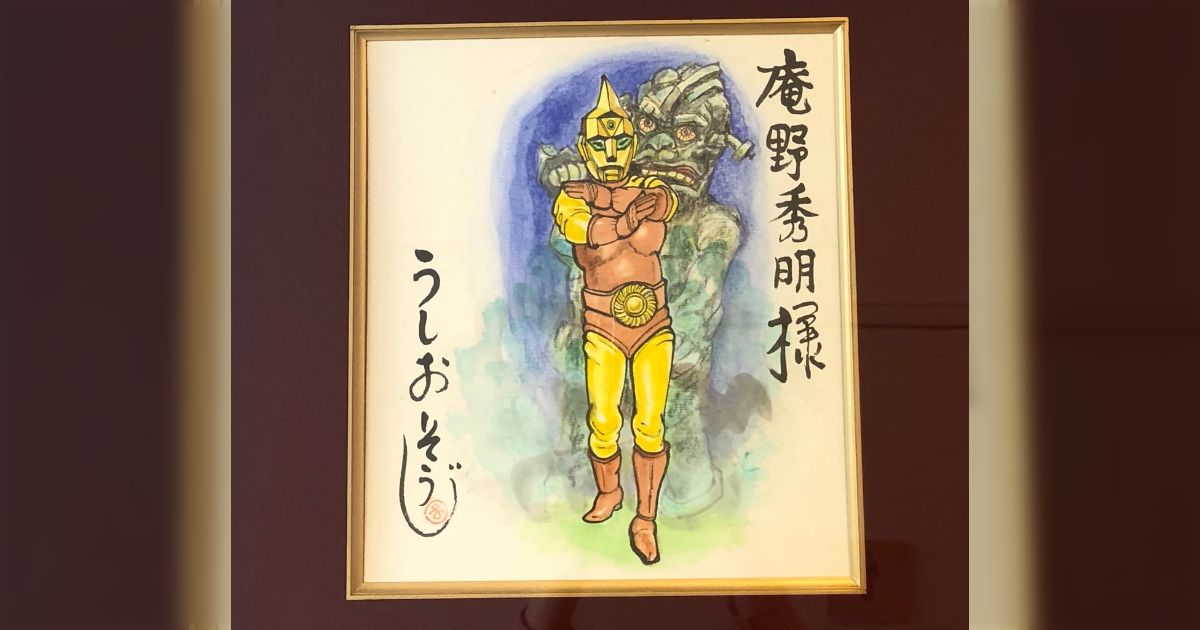 庵野秀明様
うしおそうじ